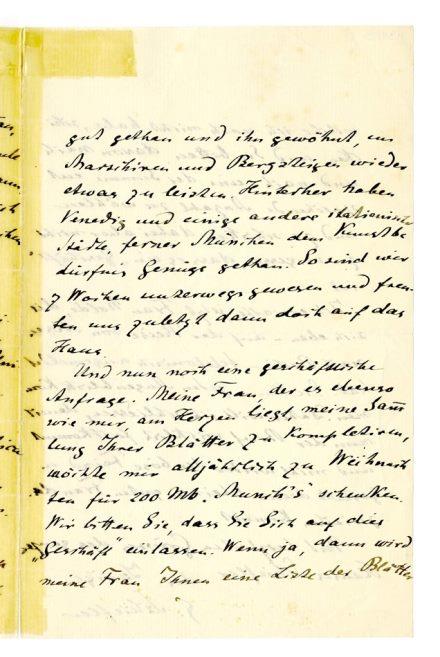 gut gethan und ihn gewöhnt, im
Marschiren und Bergsteigen wieder
etwas zu leisten. Hinterher haben
Venedig und einige andere italienische
Städte, ferner München dem Kunstbe
dürfnis Genüge gethan. So sind wir
7 Wochen unterwegs gewesen und freu-
ten uns zuletzt dann doch auf das
Haus.
Und nun noch eine geschäftliche
Anfrage. Meine Frau, der es ebenso
wie mir, am Herzen liegt, meine Samm
lung Ihrer Blätter zu kompletiren,
möchte mir alljährlich zu Weihnach
ten für 200 Mk. "Munch's" schenken.
Wir bitten Sie, dass Sie Sich auf dies
"Geschäft" einlassen. Wenn ja, dann wird
meine Frau Ihnen eine Liste der Blätter